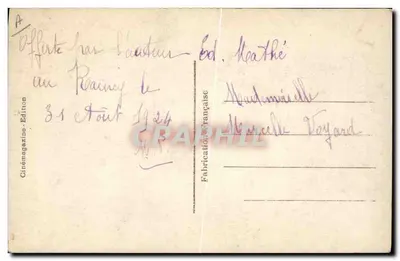 A
Offerte par l'auteur Ed. Mathé
au Raincy le
31 Août 1924
Mademoiselle
Marcelle Voyard
Cinémagazine-Edition
Fabrication Française
CPARAMA